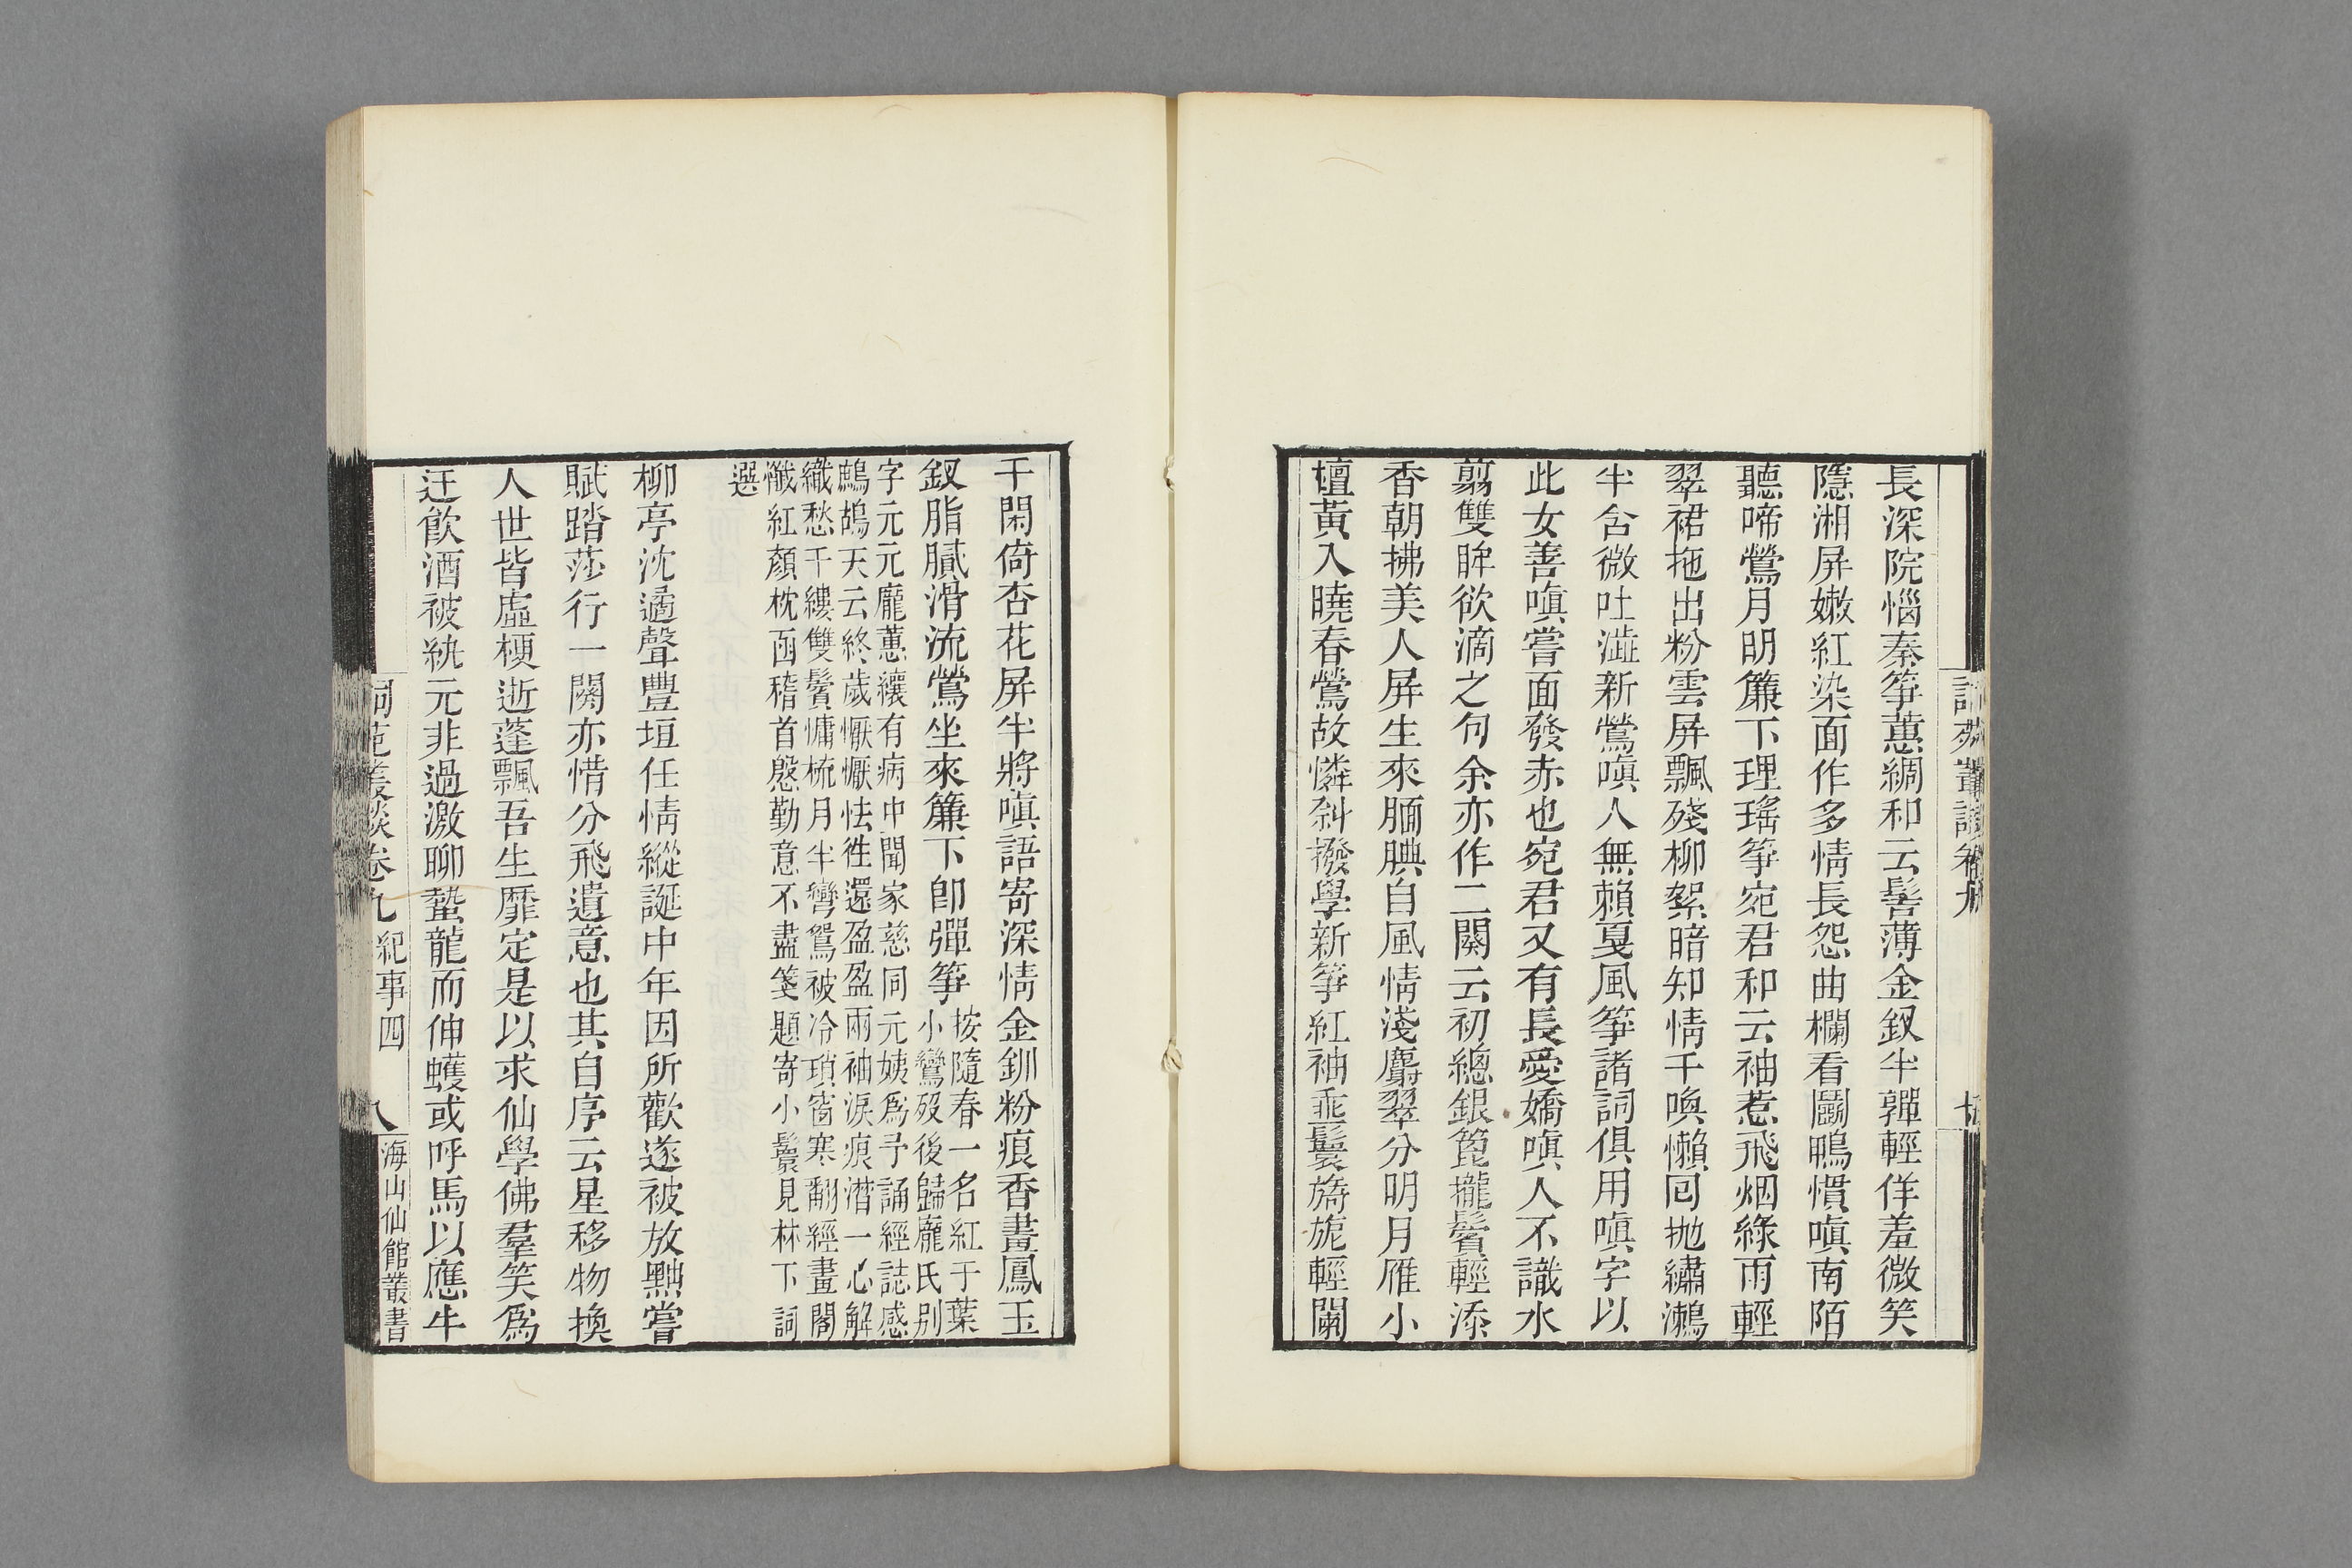 長深院惱秦筝蕙綢和云髻薄金釵半嚲輕佯羞微笑
隱湘屏嫩紅染面作多情長怨曲欄看鬭鴨慣嗔南陌
聽啼鶯月明簾下理瑤筝宛君和云袖惹飛烟綠雨輕
翠裙拖出粉雲屏飄殘柳絮暗知情千喚懶囘抛繡瀨
半含微吐澁新鶯嗔人無賴戛風筝諸詞俱用嗔字以
此女善嗔嘗面發赤也宛君又有長愛嬌嗔人不識水
剪雙眸欲滴之句余亦作二闋云初總銀篦攏鬢輕添
香朝拂美人屏生來腼腆自風情淺麝翠分明月雁小
檀黃入曉春鶯故憐斜撥學新筝紅袖乖鬟旖旎輕闌
干閑倚杏花屏半將嗔語寄深情金釧粉痕香畫鳳玉
釵脂膩滑流鶯坐來簾下卽彈筝
按隨春一名紅于葉
小鸞歿後歸龐氏别
字元元龐蕙纕有病中聞家慈同元姨爲予誦經誌感
鷓鴣天云終歲懨懨怯徃還盈盈兩袖淚痕潸一心解
織愁千縷雙鬢慵梳月半彎鴛被冷瑣窗寒翻經畫閣
懺紅顏枕函稽首慇勤意不盡箋題寄小鬟見林下詞
選
柳亭沈遹聲豐垣任情縱誕中年因所歡遂被放黜嘗
賦踏莎行一闋亦惜分飛遺意也其自序云星移物換
人世皆虛梗逝蓬飄吾生靡定是以求仙學佛羣笑爲
迂飮酒被紈元非過激聊蟄龍而伸蠖或呼馬以應牛
詞苑叢談卷九
紀事四
八
海山仙館叢書